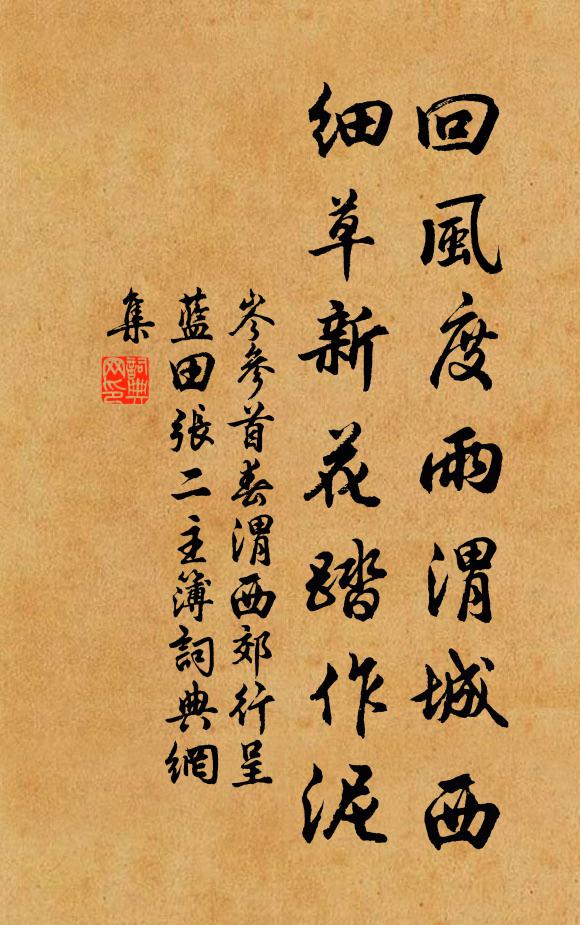 回風度雨渭城西
細草新花踏作泥
岑參首春渭西郊行呈
藍田張二主簿詞典網
集
詞典
网印